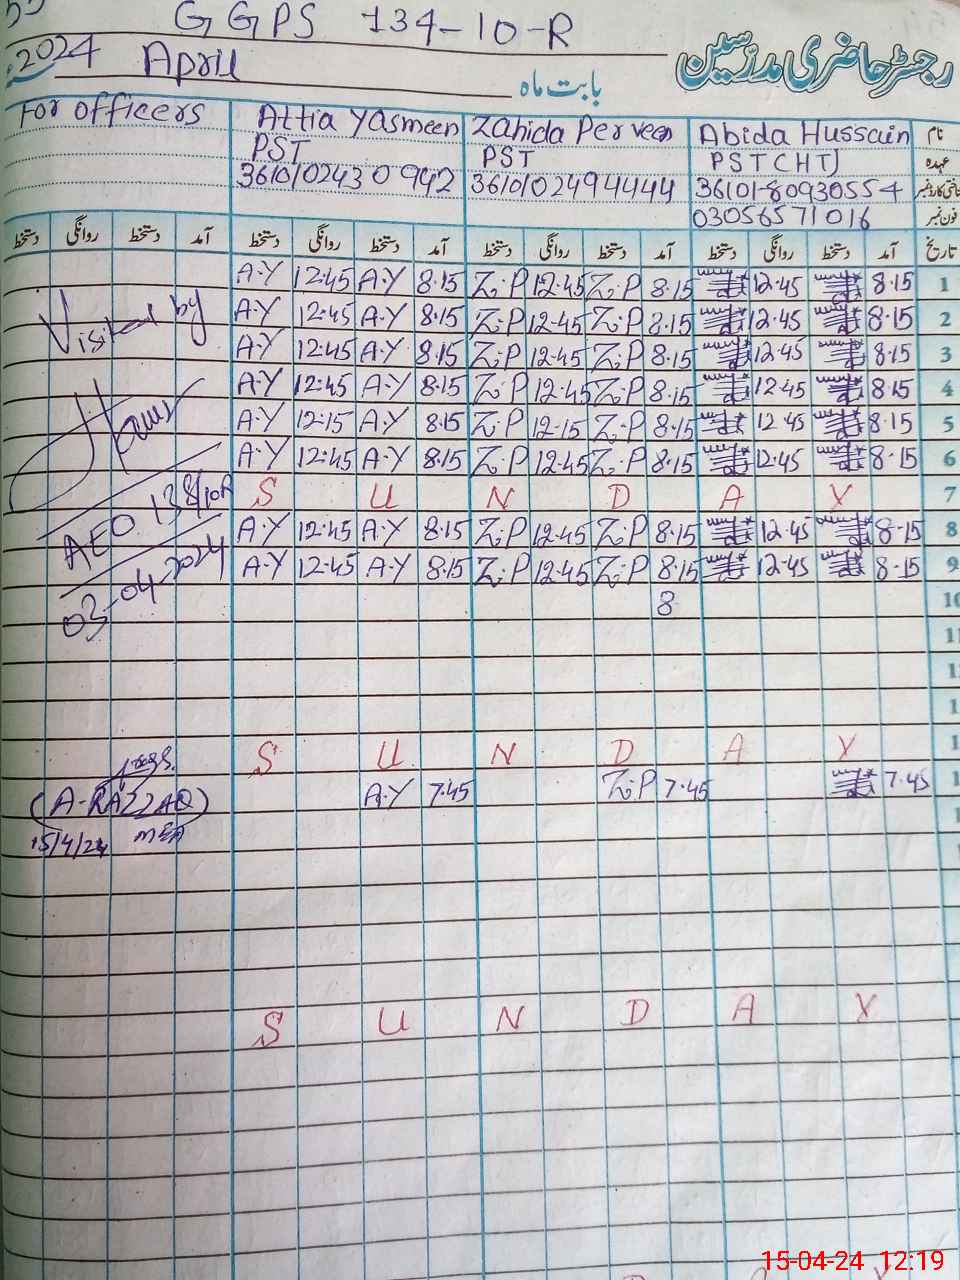 GGPS 134-10-R
رجسٹر حاضری مدرسین
2024 April بابت ماہ
For officers Attia Yasmeen Zahida Perveen Abida Hussain نام
PST PST PST CHT عہدہ
3610102430942 3610102494444 36101-80930554 شناختی کارڈ نمبر
03056571016 فون نمبر
دستخط روانگی دستخط آمد دستخط روانگی دستخط آمد دستخط روانگی دستخط آمد دستخط روانگی دستخط آمد تاریخ
A.Y 12.45 A.Y 8.15 Z.P 12.45 Z.P 8.15 12.45 8.15 1
Visited by
A.Y 12.45 A.Y 8.15 Z.P 12.45 Z.P 8.15 12.45 8.15 2
A.Y 12.45 A.Y 8.15 Z.P 12.45 Z.P 8.15 12.45 8.15 3
A.Y 12:45 A.Y 8.15 Z.P 12.45 Z.P 8.15 12.45 8.15 4
A.Y 12.15 A.Y 8.15 Z.P 12.15 Z.P 8.15 12.45 8.15 5
A.Y 12.45 A.Y 8.15 Z.P 12.45 Z.P 8.15 12.45 8.15 6
S U N D A Y 7
AEO 138/10R
A.Y 12.45 A.Y 8.15 Z.P 12.45 Z.P 8.15 12.45 8.15 8
A.Y 12.45 A.Y 8.15 Z.P 12.45 Z.P 8.15 12.45 8.15 9
03-04-2024
8 10
11
S U N D A Y
A.Y 7.45 Z.P 7.45 7.45
(A-RAZZAQ)
15/4/24 MEA
S U N D A Y
15-04-24 12:19